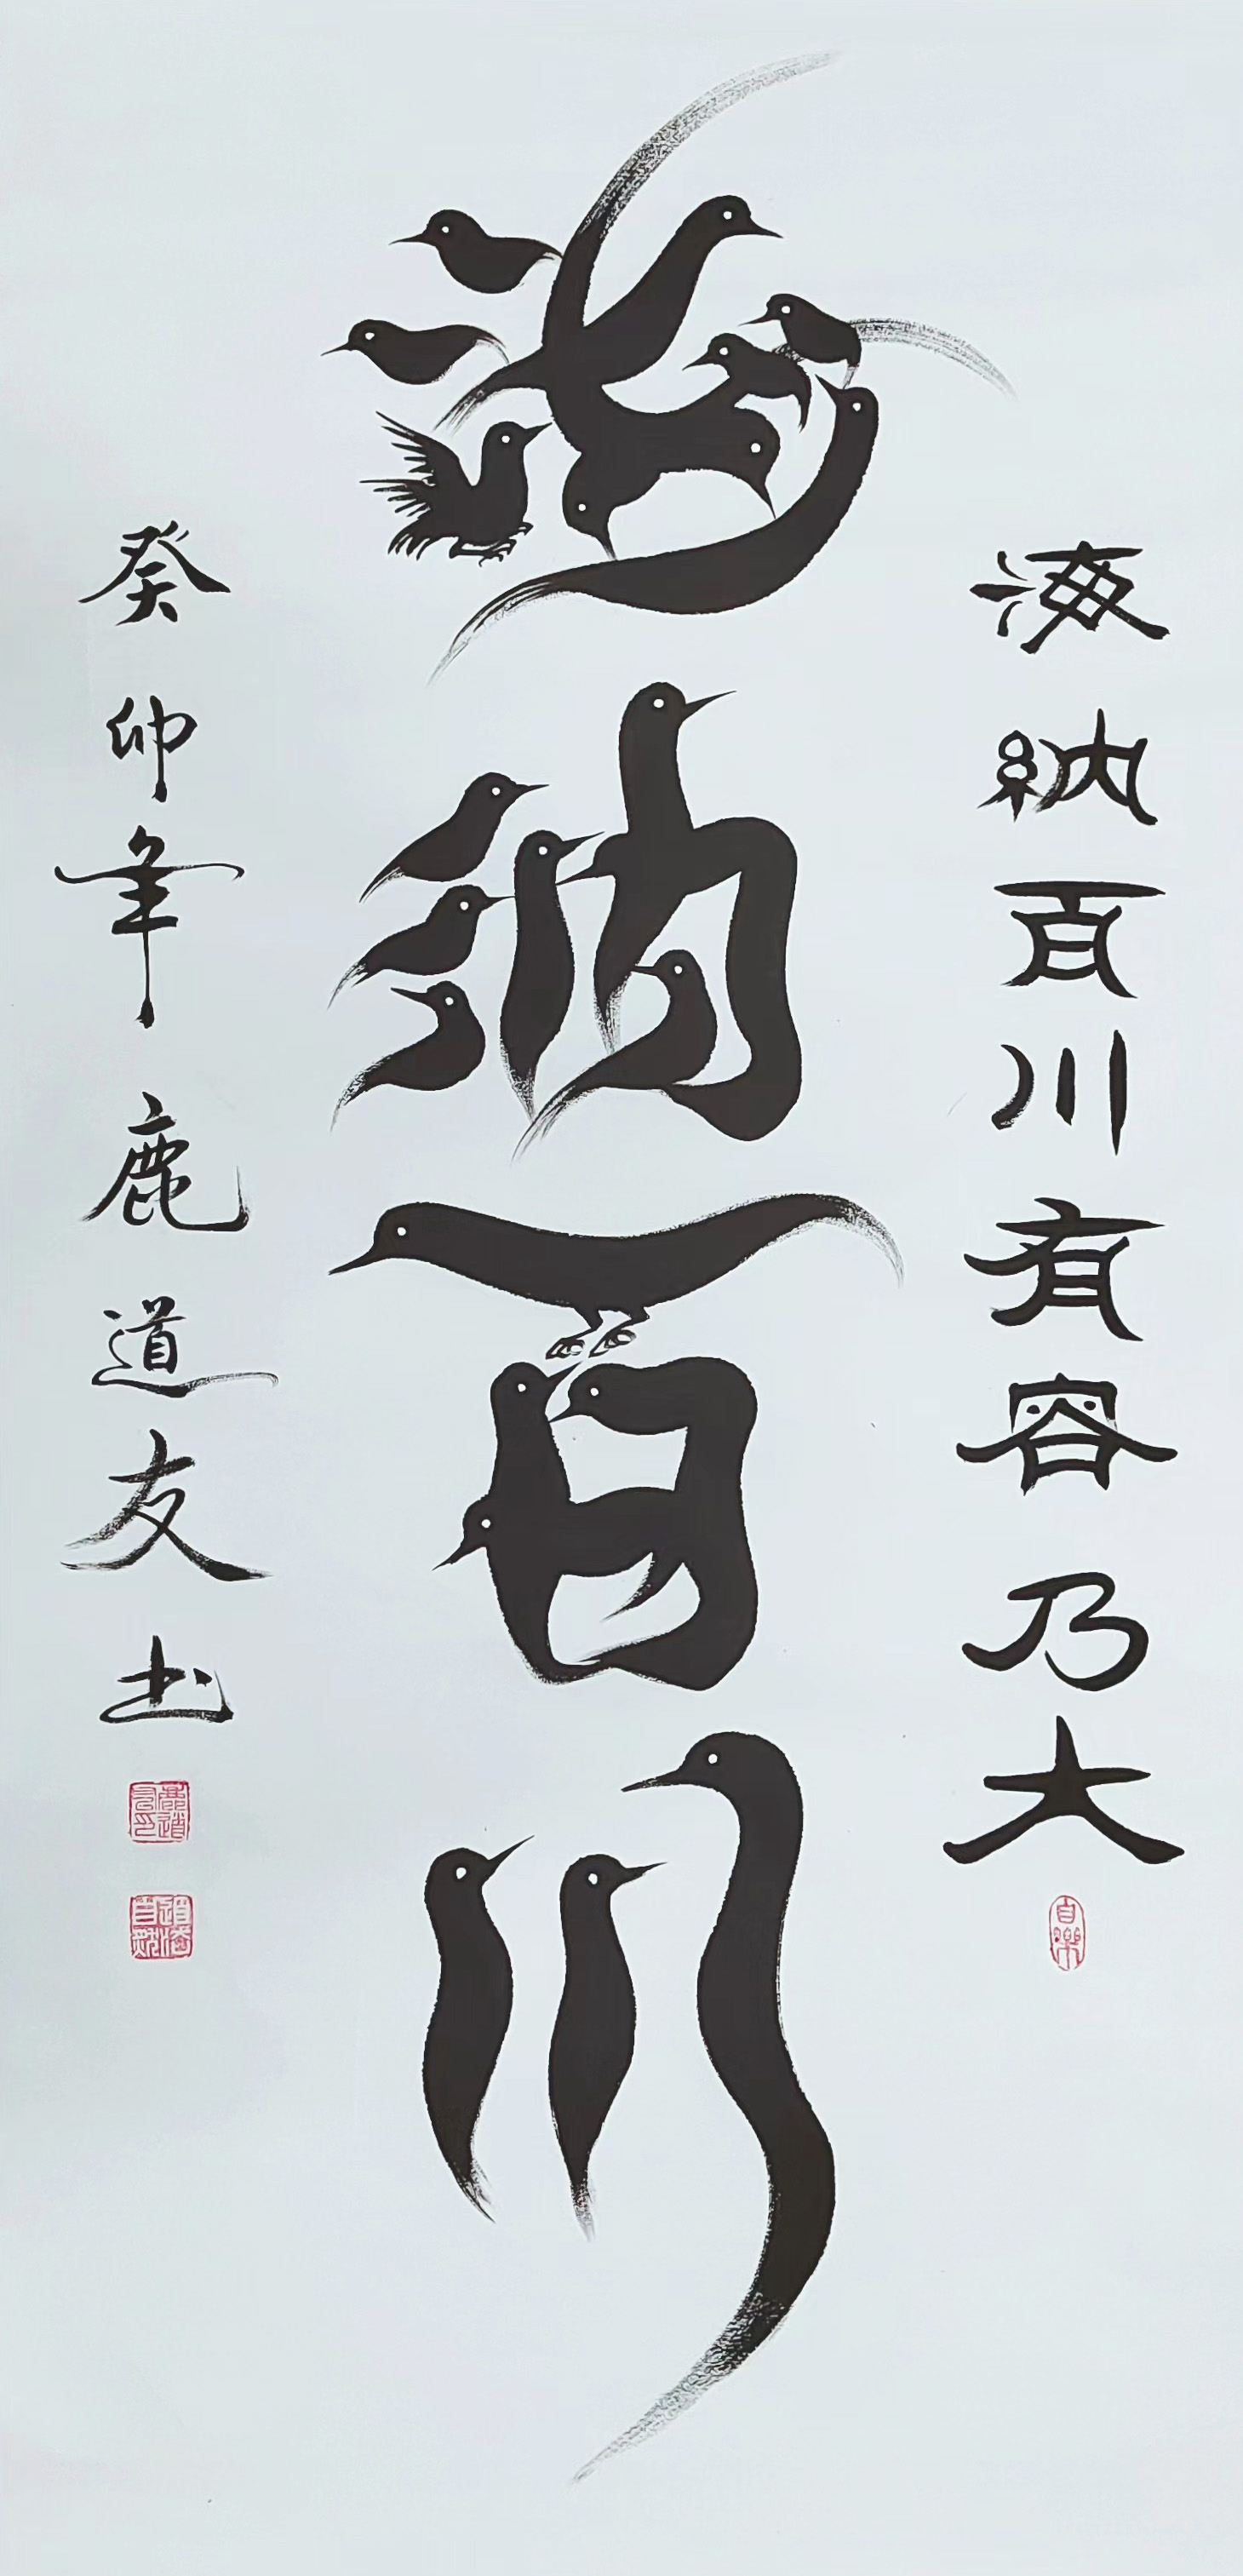 海納百川有容乃大
自樂
海納百川
癸卯年鹿道友书